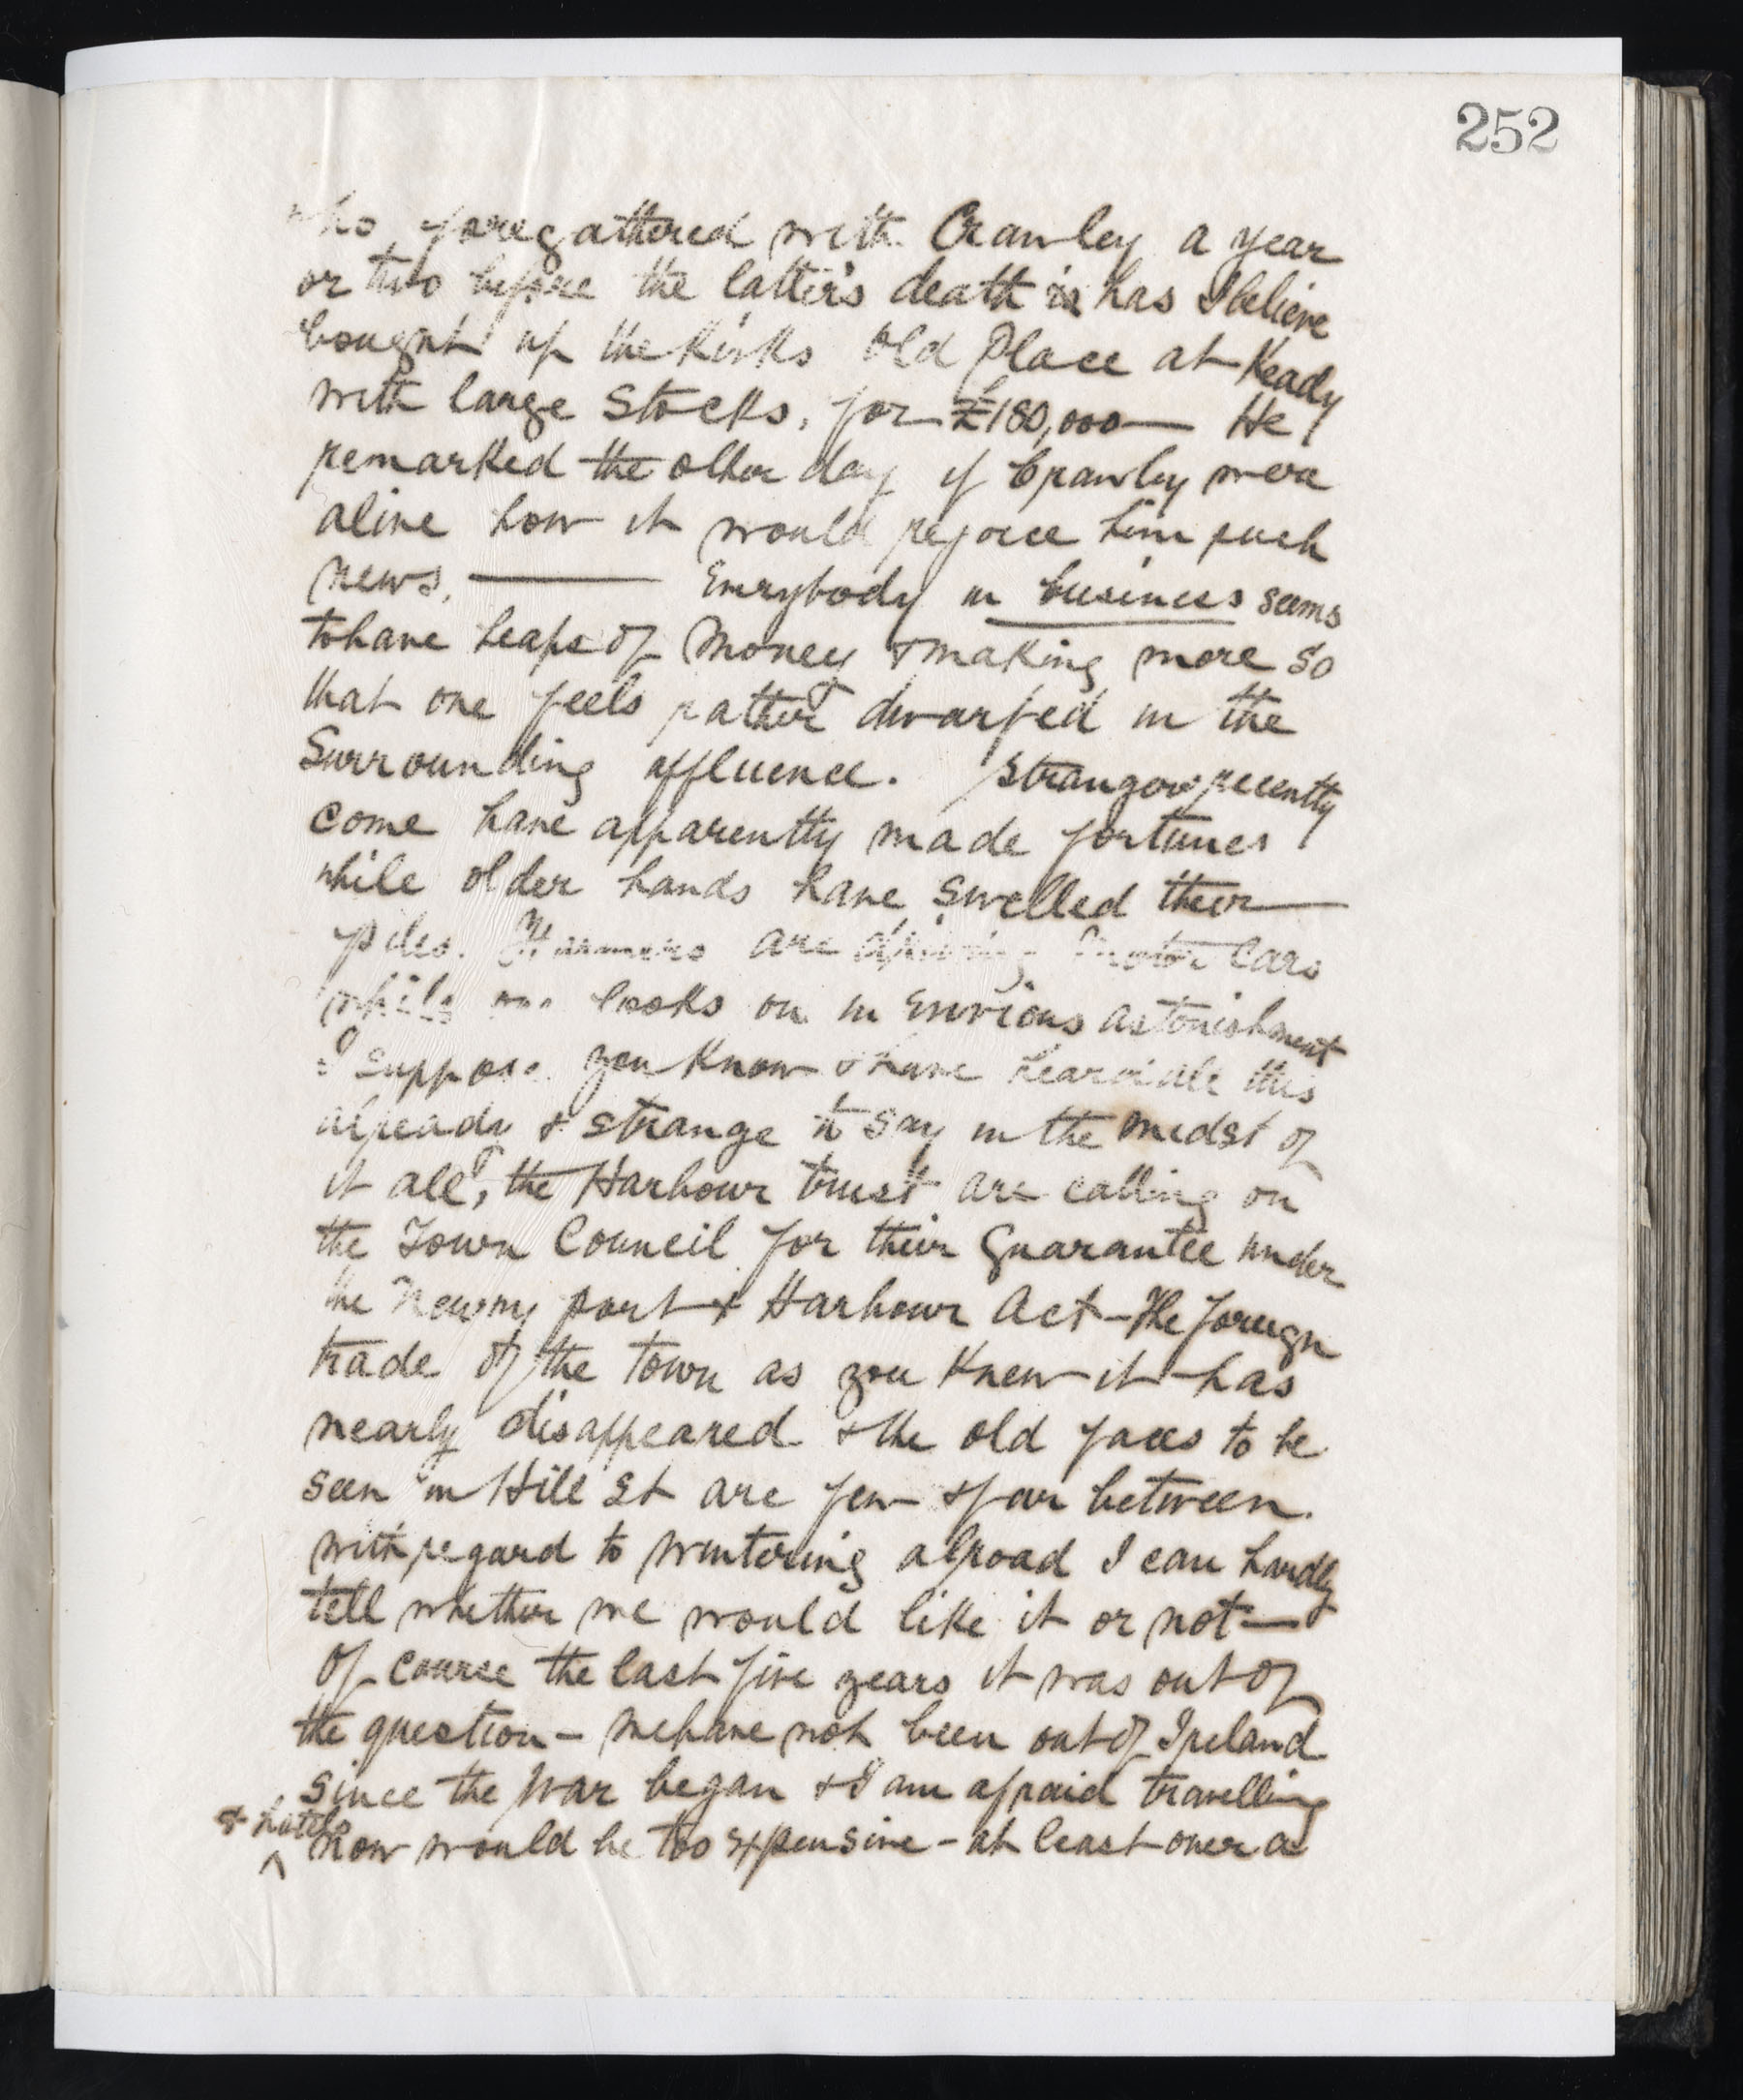 252
who foregathered with Crawley a year
or two before the latter's death is has I believe
bought up the Kirks Old Place at Keady
with large Stocks, for £180,000 — He
remarked the other day if Crawley were
alive how it would rejoice him such
news. — Everybody in business seems
to have heaps of money & making more so
that one feels rather dwarfed in the
Surrounding affluence. Strangers recently
come have apparently made fortunes
while older hands have swelled their
piles. Farmers are driving motor cars
while one looks on in envious astonishment
I suppose you know & have heard all this
already & strange to say in the midst of
it all, the Harbour trust are calling on
the Town Council for their Guarantee under
the Newry port & Harbour Act – The foreign
trade of the town as you knew it has
nearly disappeared & the old faces to be
seen in Hill St are few & far between.
With regard to wintering abroad I can hardly
tell whether we would like it or not —
Of course the last five years it was out of
the question – We have not been out of Ireland
since the War began & I am afraid travelling
& hotels
now would be too expensive – at least over a